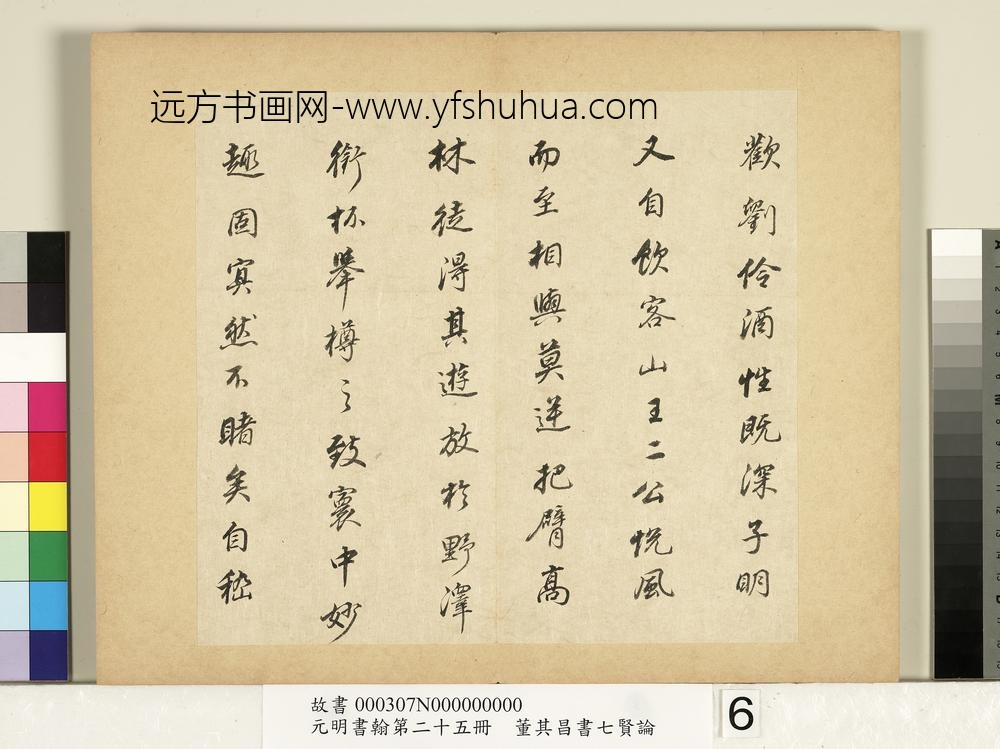 远方书画网-www.yfshuhua.com
歡劉伶酒性既深子明
又自飲客山王二公悅風
而至相與莫逆把臂高
林徒得其遊放於野澤
銜杯舉樽之致寰中妙
趣固寘然不睹矣自嵇
故書 000307N000000000
元明書翰第二十五冊 董其昌書七賢論
6